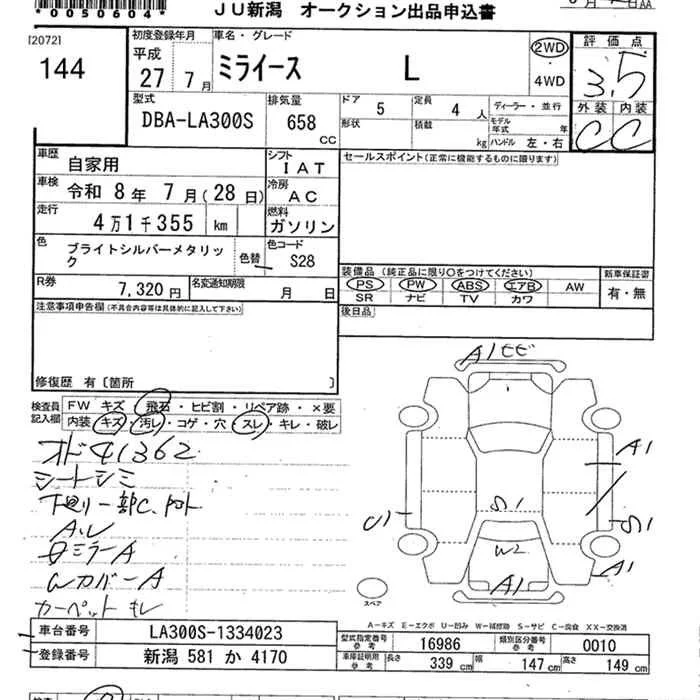 *0050604*
JU新潟 オークション出品申込書
[2072]
144
初度登録年月
平成
27 7月
車名・グレード
ミライース L
2WD
4WD
評価点
3.5
外装 内装
C C
型式
DBA-LA300S
排気量
658
CC
ドア 5
定員 4 人
形状
積載 kg
ディーラー・並行
モデル年式 年
ハンドル 左・右
車歴
自家用
シフト
IAT
セールスポイント(正常に機能するものに限ります)
車検
令和 8年 7月(28日)
冷房
AC
走行
4万1千355 km
燃料
ガソリン
色
ブライトシルバーメタリック
色替
色コード
S28
装備品(純正品に限り○をつけてください)
PS PW ABS エアB AW
SR ナビ TV カワ
新車保証書
有・無
R券
7,320円
名変通知期限
月 日
後日品
注意事項申告欄(不具合内容等は具体的に記入して下さい)
修復歴 有〔箇所 〕
検査員記入欄
FW キズ・飛石・ヒビ割・リペア跡・×要
内装 キズ・汚レ・コゲ・穴・スレ・キレ・破レ
オド41362
シートシミ
下廻り一部C、
A.L
ミラーA
WカバーA
カーペット
A1
A1
S1
S1
U1
W2
A1
A1
スペア
A-キズ E-エクボ U-凹み W-補修跡 S-サビ C-腐食 XX-交換済
車台番号
LA300S-1334023
登録番号
新潟 581 か 4170
型式指定番号
参考
16986
類別区分番号
参考
0010
車庫証明用
参考
長さ 339 cm
幅 147 cm
高さ 149 cm